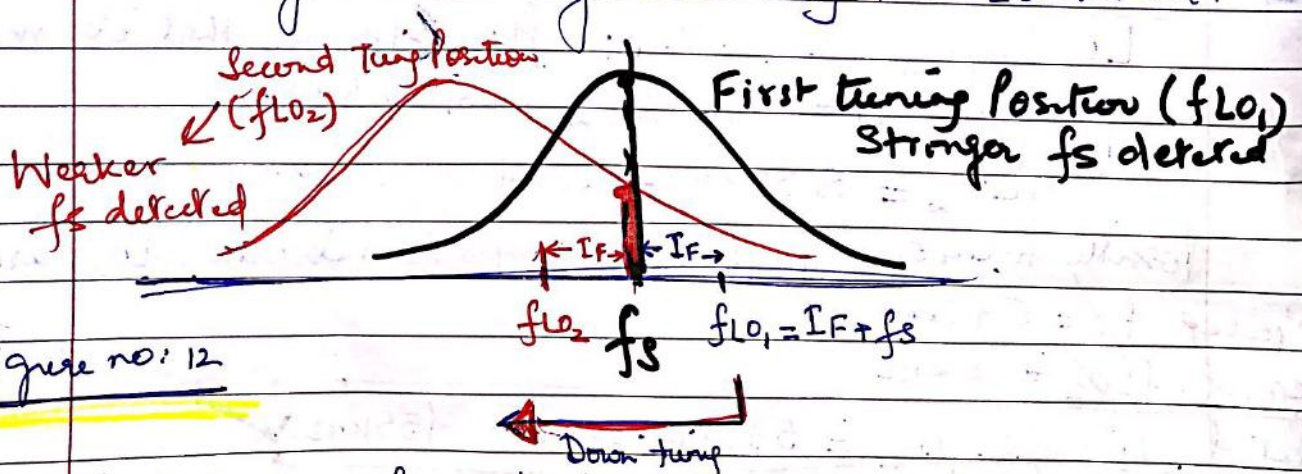 Second Tuing Position
(fLO₂)
Weaker
fs detected
First tuning Position (fLO₁)
Stronger fs detected
IF IF
fLO₂ fs fLO₁ = IF + fs
gure no: 12
Down tuing